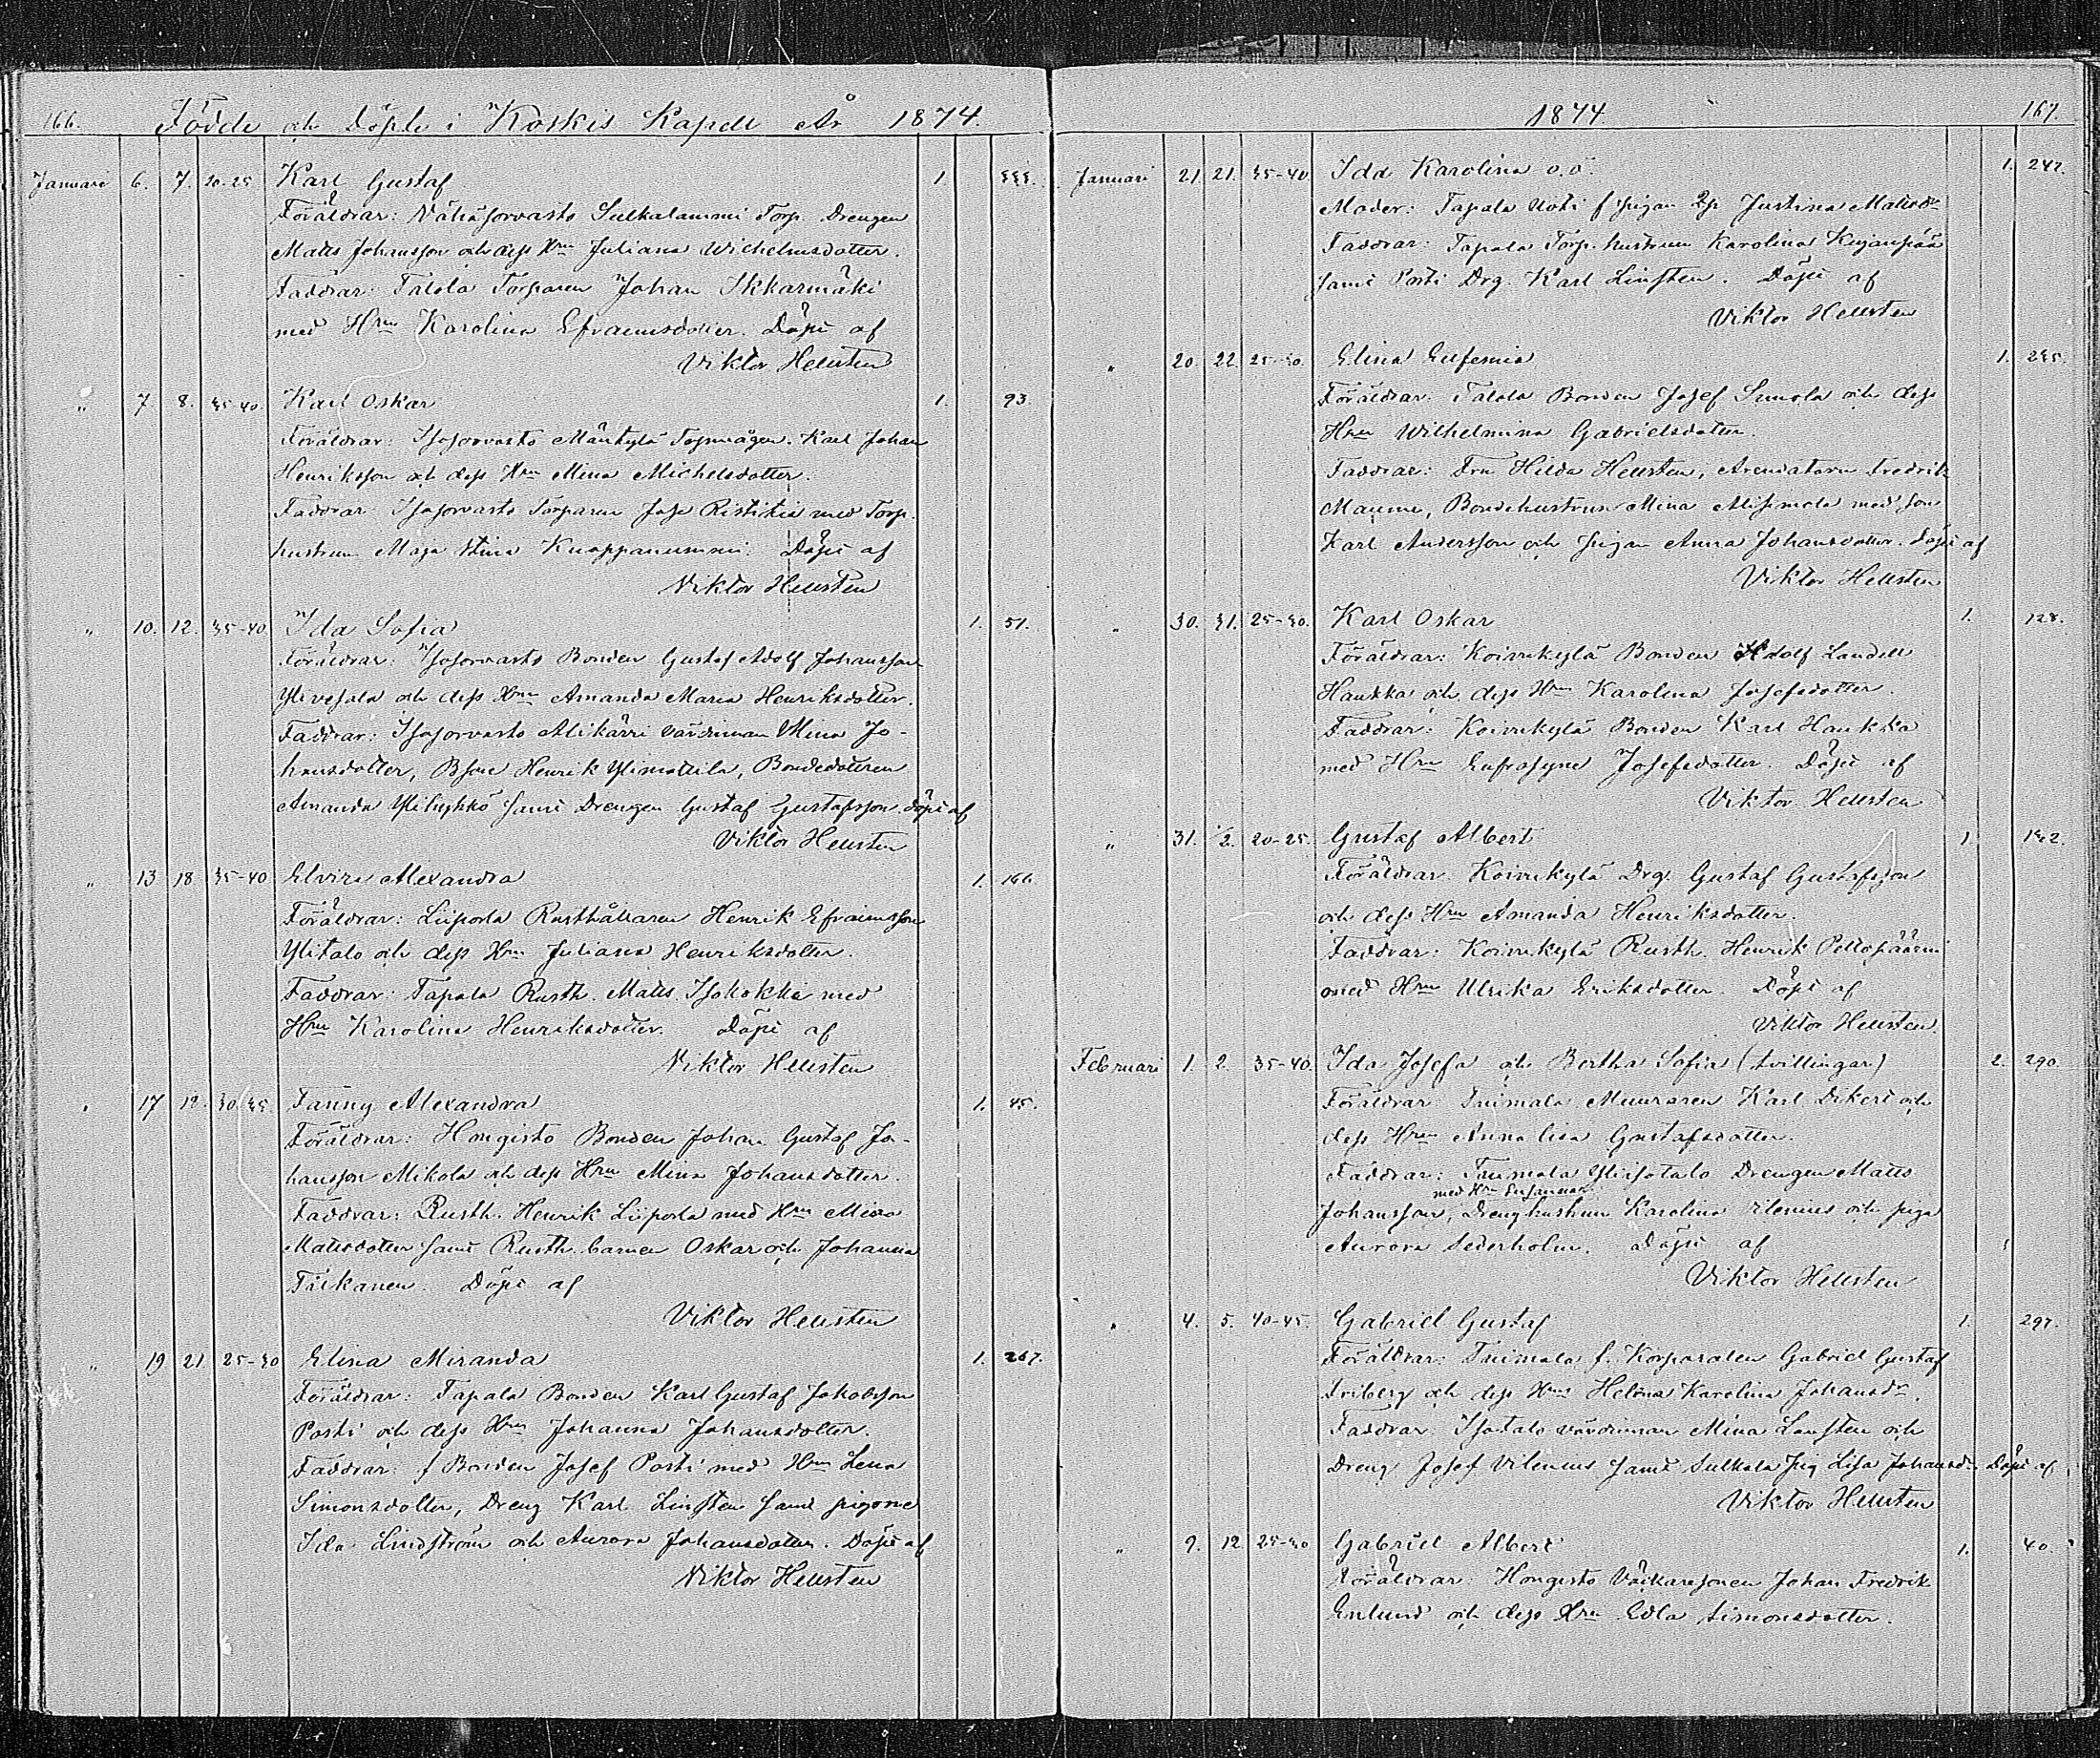 166. Födde och Döpte i Koskis Kapell År 1874.
Januari 6. 7. 20-25 Karl Gustaf 1. 333.
Föräldrar: Vähäsorvasto Sulkalammi Torp. Drengen
Matts Johansson och dess Hru Juliana Wilhelmsdotter.
Faddrar: Talola Torparen Johan Ikkarmäki
med Hru Karolina Efraimsdotter. Döpt af
Viktor Hellsten
" 7. 8. 35-40. Karl Oskar 1. 93.
Föräldrar: Isosorvasto Mäntylä Karl Johan
Henriksson och dess Hru Mina Michelsdotter.
Faddrar: Isosorvasto Torparen Josef med Torp.
hustrun Maja Stina Döpt af
Viktor Hellsten
" 10. 12. 35-40. Ida Sofia 1. 51.
Föräldrar: Isosorvasto Bonden Gustaf Adolf Johansson
och dess Hru Amanda Maria Henriksdotter.
Faddrar: Isosorvasto Alikärri värdinnan Mina Jo-
hansdotter, Bson Henrik Ylimattila, Bondedottren
Amanda samt Drengen Gustaf Gustafsson. Döpt af
Viktor Hellsten
" 13 18 35-40 Elvira Alexandra 1. 166
Föräldrar: Liipola Rusthållaren Henrik Efraimsson
Ylitalo och dess Hru Juliana Henriksdotter.
Faddrar: Tapala Rusth. Matts Isokokka med
Hru Karolina Henriksdotter. Döpt af
Viktor Hellsten
" 17 18. 30 35 Fanny Alexandra 1. 45.
Föräldrar: Hongisto Bonden Johan Gustaf Jo-
hansson Mikola och dess Hru Mina Johansdotter.
Faddrar: Rusth. Henrik Liipola med Hru Mina
Mattsdotter samt Rusth. barnen Oskar och Johanna
Döpt af
Viktor Hellsten
" 19 21 25-30 Elina Miranda 1. 267.
Föräldrar: Tapala Bonden Karl Gustaf Jakobsson
Posti och dess Hru Johanna Johansdotter.
Faddrar: f Bonden Josef Posti med Hru Lena
Simonsdotter, Dreng Karl Linsten samt pigorne
Ida Lindström och Aurora Johansdotter. Döpt af
Viktor Hellsten
1874 167.
Januari 21. 21. 35-40 Ida Karolina o.ä. 1. 247.
Moder: Tapala f pigan Justina Matsdr
Faddrar: Tapala Torp. hustrun Karolina Kujanpää
samt Posti Drg. Karl Linsten. Döpt af
Viktor Hellsten
" 20. 22. 25-30. Elina Eufemia 1. 235.
Föräldrar: Talola Bonden Josef Simola och dess
Hru Wilhelmina Gabrielsdotter.
Faddrar: Fru Hilda Hellsten, Arendatorn Fredrik
Bondehustrun Mina med son
Karl Andersson och pigan Anna Johansdotter. Döpt af
Viktor Hellsten
" 30. 31. 25-30. Karl Oskar 1. 128.
Föräldrar: Koivukylä Bonden Adolf Landell
Haukka och dess Hru Karolina Josefsdotter.
Faddrar: Koivukylä Bonden Karl Haukka
med Hru Eufrosyne Josefsdotter. Döpt af
Viktor Hellsten
" 31. 1/2. 20-25. Gustaf Albert 1 142.
Föräldrar: Koivukylä Drg. Gustaf Gustafsson
och dess Hru Amanda Henriksdotter.
Faddrar: Koivukylä Rusth. Henrik
med Hru Ulrika Eriksdotter. Döpt af
Viktor Hellsten.
Februari 1. 2. 35-40. Ida Josefa och Bertha Sofia (tvillingar) 2. 290.
Föräldrar: Tuimala Muuraren Karl Dikert och
dess Hru Anna Lisa Gustafsdotter.
Faddrar: Tuimala Yliisotalo Drengen Matts
med Hru Susanna
Johansson, Drenghustrun Karolina Vilenius och piga
Aurora Sederholm. Döpt af
Viktor Hellsten
" 4. 5. 40-45. Gabriel Gustaf 1. 297.
Föräldrar: Tuimala f. Korparalen Gabriel Gustaf
Friberg och dess Hru Helena Karolina Johansdr.
Faddrar: Isotalo värdinnan Mina Lansten och
Dreng Josef Vilenius samt Sulkala pig Lisa Johansdr. Döpt af
Viktor Hellsten
" 9. 12 25-30 Gabriel Albert 1. 40.
Föräldrar: Hongisto Johan Fredrik
Enlund och dess Hru Edla Simonsdotter.